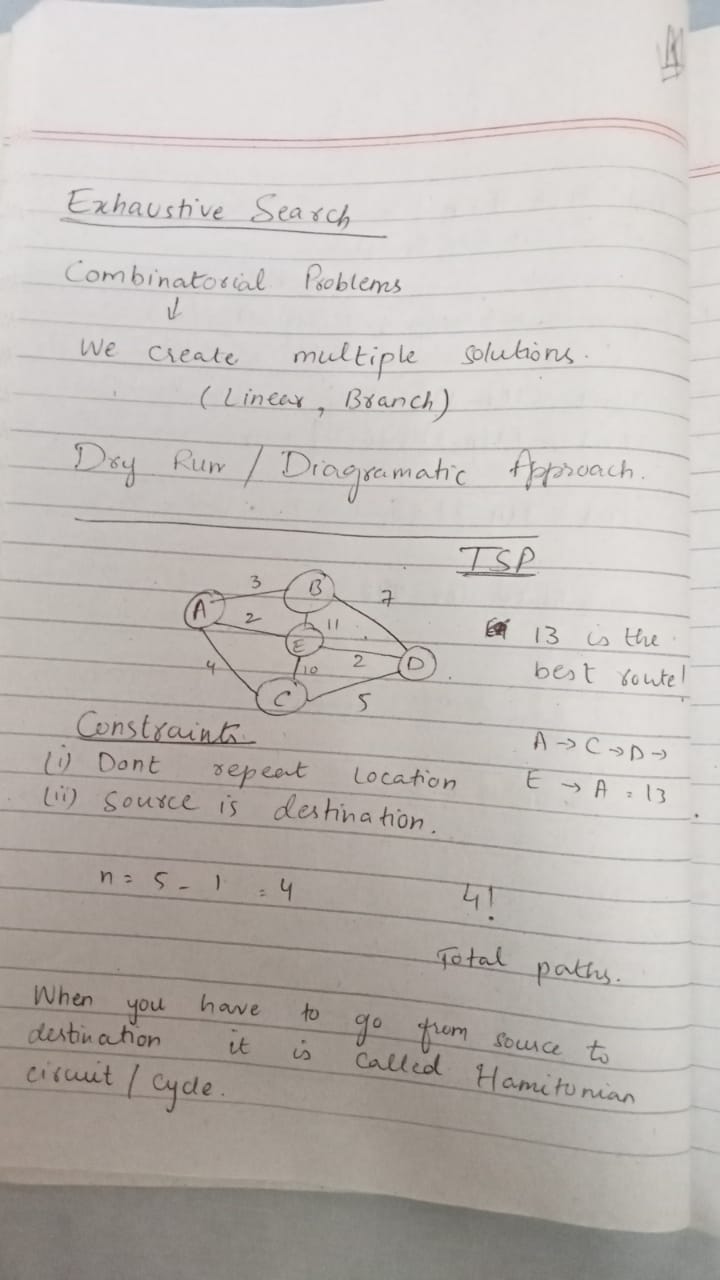 Exhaustive Search
Combinatorial Problems
↓
We create multiple solutions.
(Linear, Branch)
Dry Run / Diagramatic Approach.
TSP
A
3
B
7
2
11
E
4
10
2
D
C
5
13 is the
best route!
A → C → D →
E → A = 13
Constraints
(i) Dont repeat location
(ii) Source is destination.
n = 5 - 1 = 4
4!
Total paths.
When you have to go from source to
destination it is called Hamitonian
circuit / cycle.